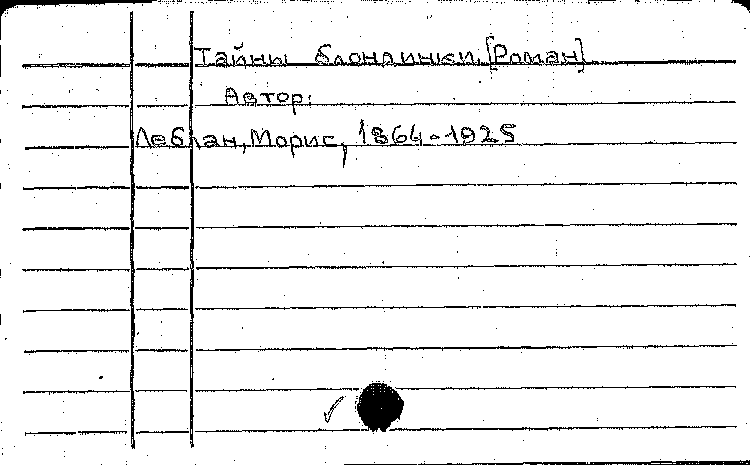 Тайны блондинки. [Роман]
Автор:
Леблан, Морис, 1864-1925